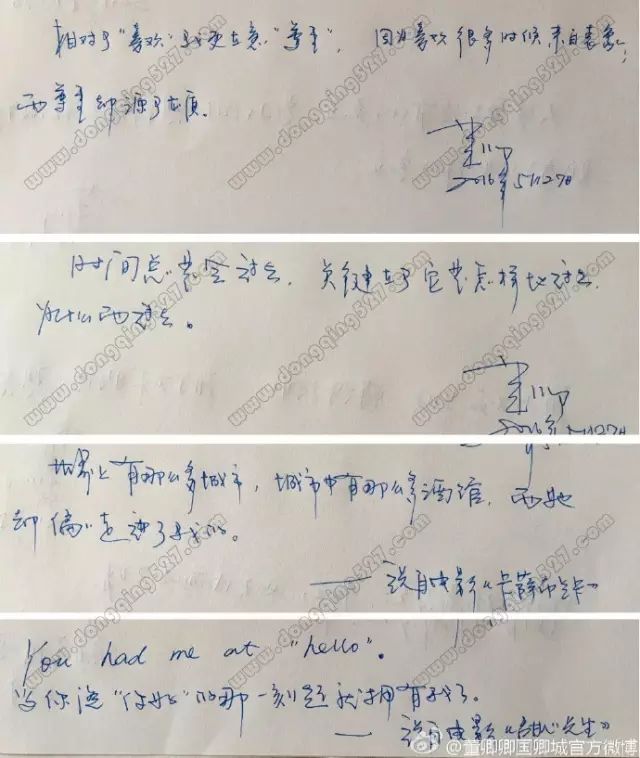 相对于“喜欢”我更在意“尊重”，因为喜欢很多时候来自表象；
而尊重却源于本质。
董卿
2016年5月27日
时间总会过去，关键在于它是怎样地过去，
为什么而过去。
董卿
2016年5月27日
世界上有那么多城市，城市中有那么多酒馆，而她
却偏偏走进了我的。
——说自电影《卡萨布兰卡》
You had me at "hello".
当你说“你好”的那一刻起就拥有我了。
——说自电影《甜心先生》
www.dongqing527.com
@董卿卿国卿城官方微博